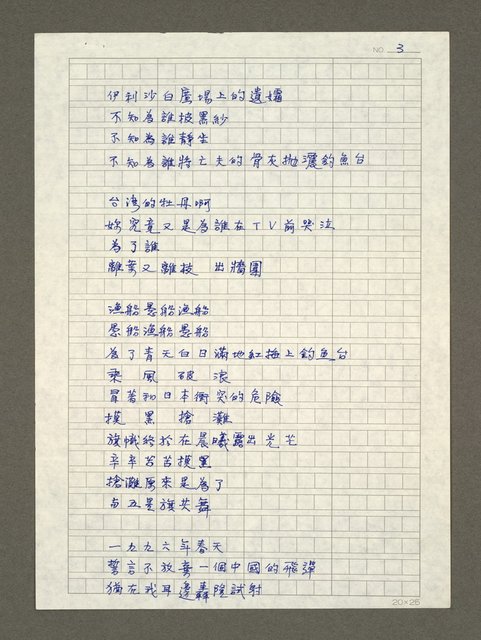 NO. 3
伊利沙白廣場上的遺孀
不知為誰披黑紗
不知為誰靜坐
不知為誰將亡夫的骨灰拋灑釣魚台
台灣的牡丹啊
妳究竟又是為誰在TV前哭泣
為了誰
離葉又離枝 出牆圍
漁船愚船漁船
愚船漁船愚船
為了青天白日滿地紅插上釣魚台
乘風破浪
冒著和日本衝突的危險
摸黑搶灘
旗幟終於在晨曦露出光芒
辛辛苦苦摸黑
搶灘原來是為了
與五星旗共舞
一九九六年春天
誓言不放棄一個中國的飛彈
猶在我耳邊轟隆試射
20×25